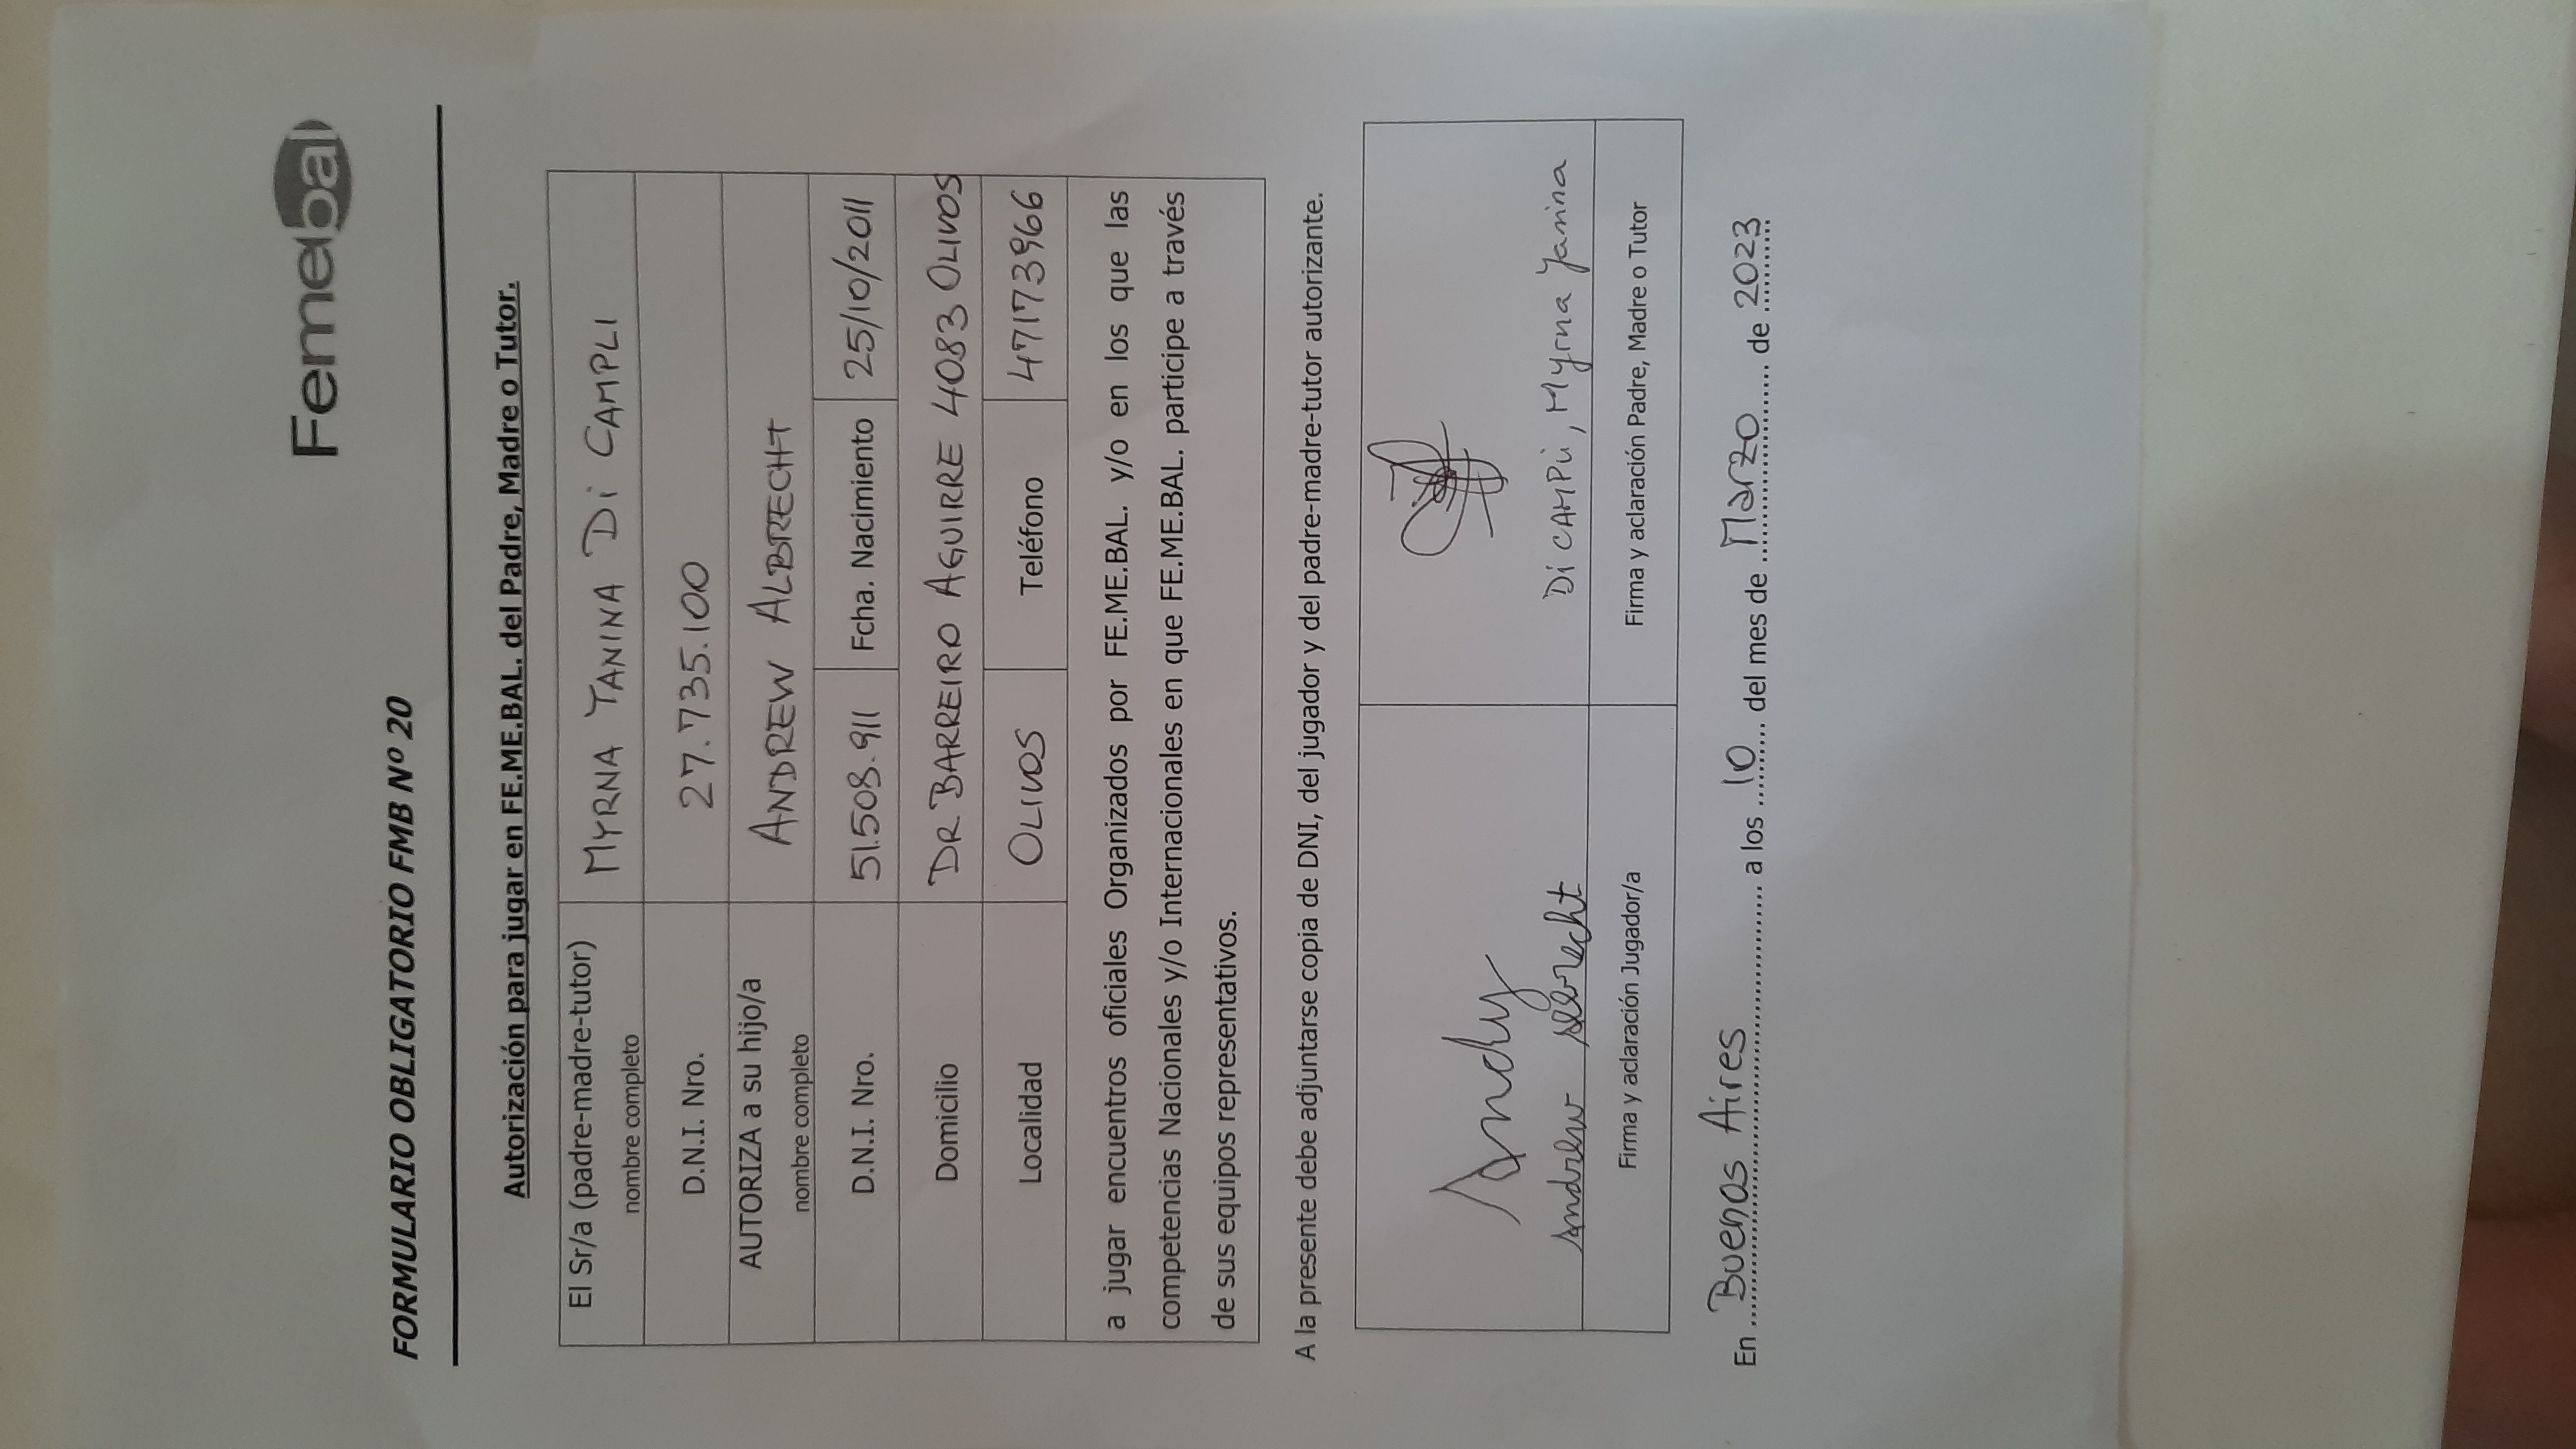 Femebal
FORMULARIO OBLIGATORIO FMB Nº 20
Autorización para jugar en FE.ME.BAL. del Padre, Madre o Tutor.
El Sr/a (padre-madre-tutor) MYRNA YANINA Di CAMPLI
nombre completo
D.N.I. Nro. 27.735.100
AUTORIZA a su hijo/a ANDREW ALBRECHT
nombre completo
D.N.I. Nro. 51.508.911 Fcha. Nacimiento 25/10/2011
Domicilio DR BARREIRO AGUIRRE 4083 OLIVOS
Localidad OLIVOS Teléfono 47173966
a jugar encuentros oficiales Organizados por FE.ME.BAL. y/o en los que las
competencias Nacionales y/o Internacionales en que FE.ME.BAL. participe a través
de sus equipos representativos.
A la presente debe adjuntarse copia de DNI, del jugador y del padre-madre-tutor autorizante.
Andy
Andrew Albrecht Di CAMPLi, Myrna Yanina
Firma y aclaración Jugador/a Firma y aclaración Padre, Madre o Tutor
En Buenos Aires a los 10 del mes de Marzo de 2023